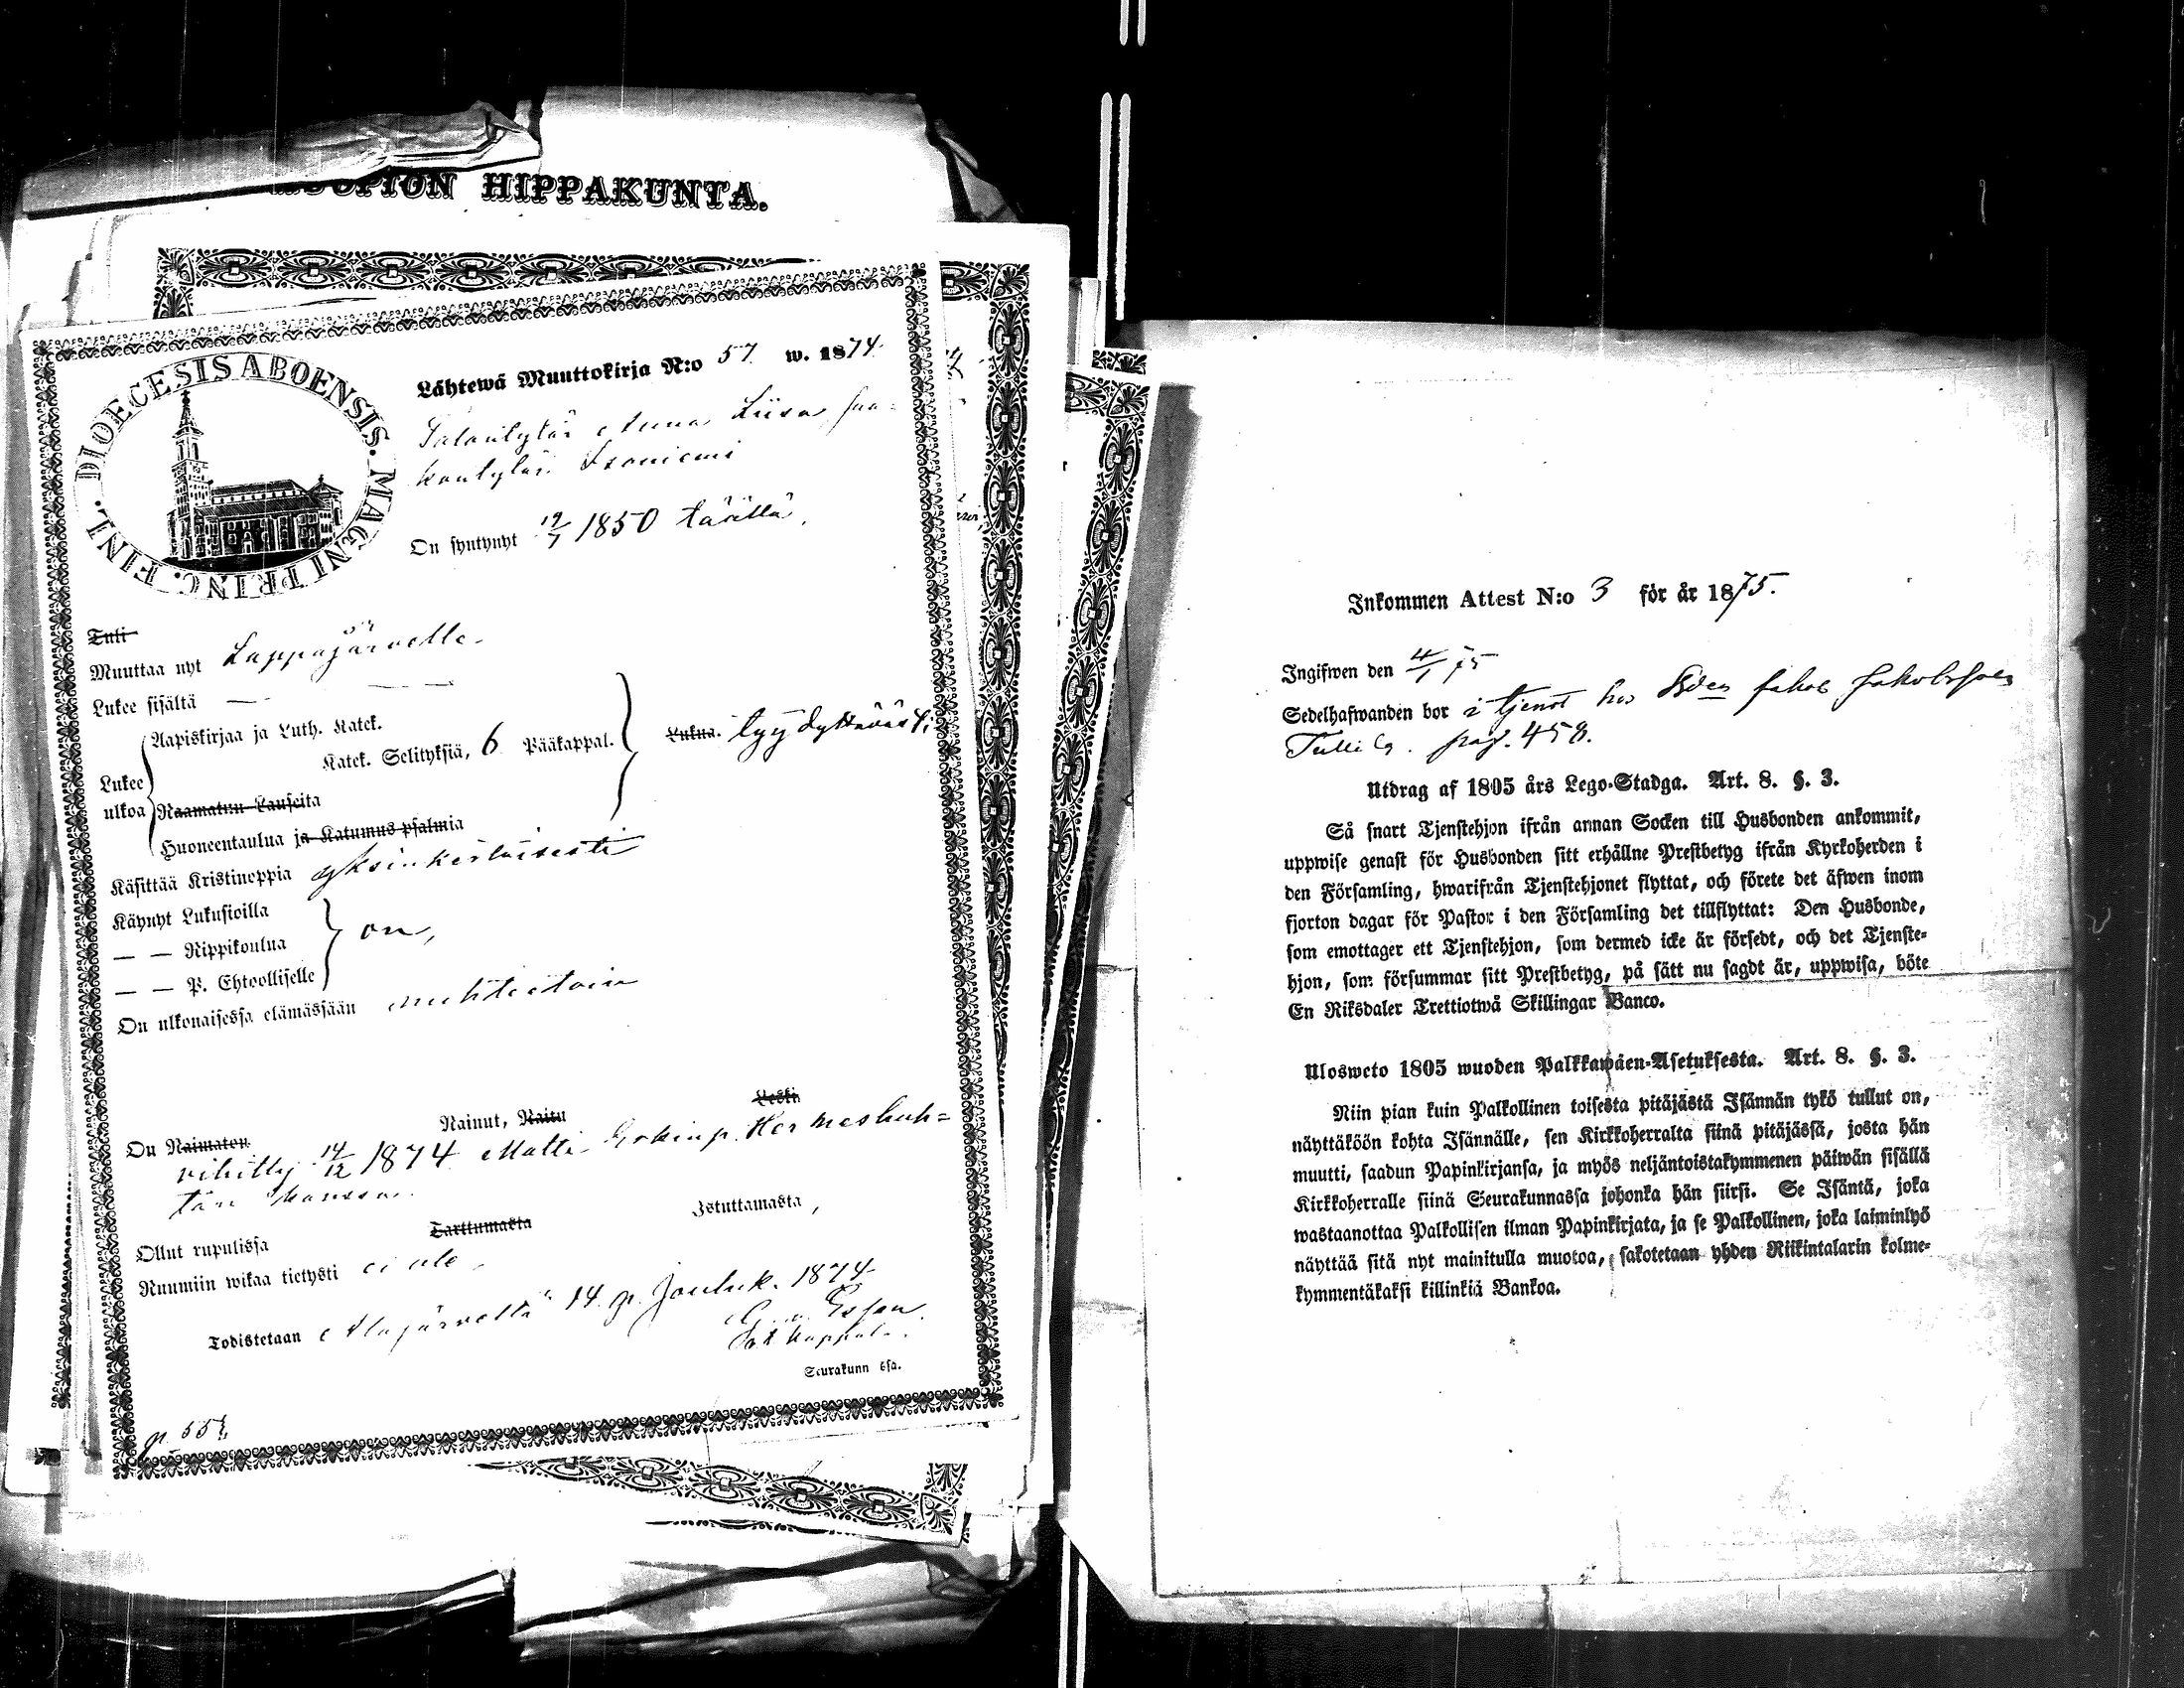 KUOPION HIPPAKUNTA.
DIOECESIS ABOENSIS. MAGNI PRINC. FINL.
Lähtewä Muuttokirja N:o 57 w. 1874
Talontytär Anna Liisa Jaa-
kontytär Isoniemi
On syntynyt 19/7 1850 täällä,
Tuli
Muuttaa nyt Lappajärvelle
Lukee sisältä — — —
Lukee ulkoa
Aapiskirjaa ja Luth. Katek.
Katek. Selityksiä, 6 Pääkappal.
Raamatun Lauseita
Huoneentaulua ja Katumus-psalmia
Lukua. tyydyttävästi
Käsittää Kristinoppia yksinkertaisesti
Käynyt Lukusioilla
— — Rippikoulua
— — P. Ehtoolliselle
on,
On ulkonaisessa elämässään nuhteetoin
On Naimaton Nainut, Naitu Leski
vihitty 14/12 1874 Matti Hermeshuh=
tan kanssa.
Ollut rupulissa Tarttumasta Istuttamasta,
Ruumiin wikaa tietysti ei ole,
Todistetaan Alajärveltä 14 p. Jouluk. 1874
Seurakunn
p. 55
Inkommen Attest N:o 3 för år 1875.
Ingifwen den 4/1 75
Sedelhafwanden bor i tjenst hos Jakob Jakobsson
pag. 458.
Utdrag af 1805 års Lego-Stadga. Art. 8. §. 3.
Så snart Tjenstehjon ifrån annan Socken till Husbonden ankommit,
uppwise genast för Husbonden sitt erhållne Prestbetyg ifrån Kyrkoherden i
den Församling, hwarifrån Tjenstehjonet flyttat, och förete det äfwen inom
fjorton dagar för Pastor i den Församling det tillflyttat: Den Husbonde,
som emottager ett Tjenstehjon, som dermed icke är försedt, och det Tjenste-
hjon, som försummar sitt Prestbetyg, på sätt nu sagdt är, uppwisa, böte
En Riksdaler Trettiotwå Skillingar Banco.
Ulosweto 1805 wuoden Palkkawäen-Asetuksesta. Art. 8. §. 3.
Niin pian kuin Palkollinen toisesta pitäjästä Isännän tykö tullut on,
näyttäköön kohta Isännälle, sen Kirkkoherralta siinä pitäjässä, josta hän
muutti, saadun Papinkirjansa, ja myös neljäntoistakymmenen päiwän sisällä
Kirkkoherralle siinä Seurakunnassa johonka hän siirsi. Se Isäntä, joka
wastaanottaa Palkollisen ilman Papinkirjata, ja se Palkollinen, joka laiminlyö
näyttää sitä nyt mainitulla muotoa, sakotetaan yhden Riikintalarin kolme-
kymmentäkaksi killinkiä Bankoa.